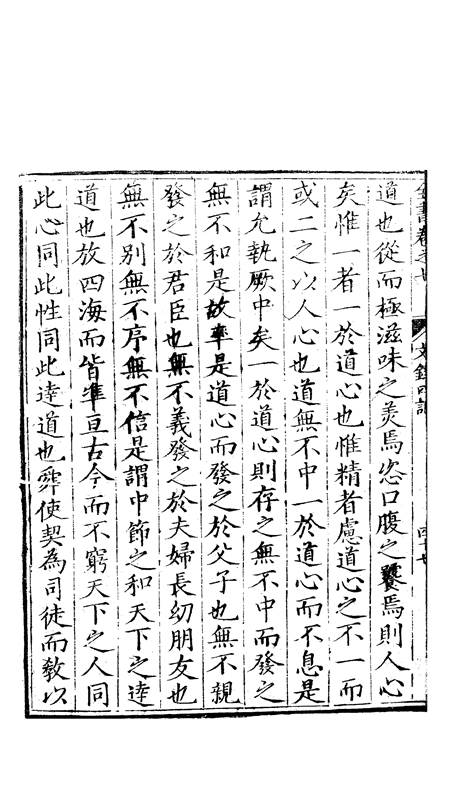 全書卷之七 文錄四
道也從而極滋味之美焉恣口腹之饕焉則人心
矣惟一者一於道心也惟精者慮道心之不一而
或二之以人心也道無不中一於道心而不息是
謂允執厥中矣一於道心則存之無不中而發之
無不和是故率是道心而發之於父子也無不親
發之於君臣也無不義發之於夫婦長幼朋友也
無不別無不序無不信是謂中節之和天下之達
道也放四海而皆準亘古今而不窮天下之人同
此心同此性同此達道也舜使契為司徒而教以